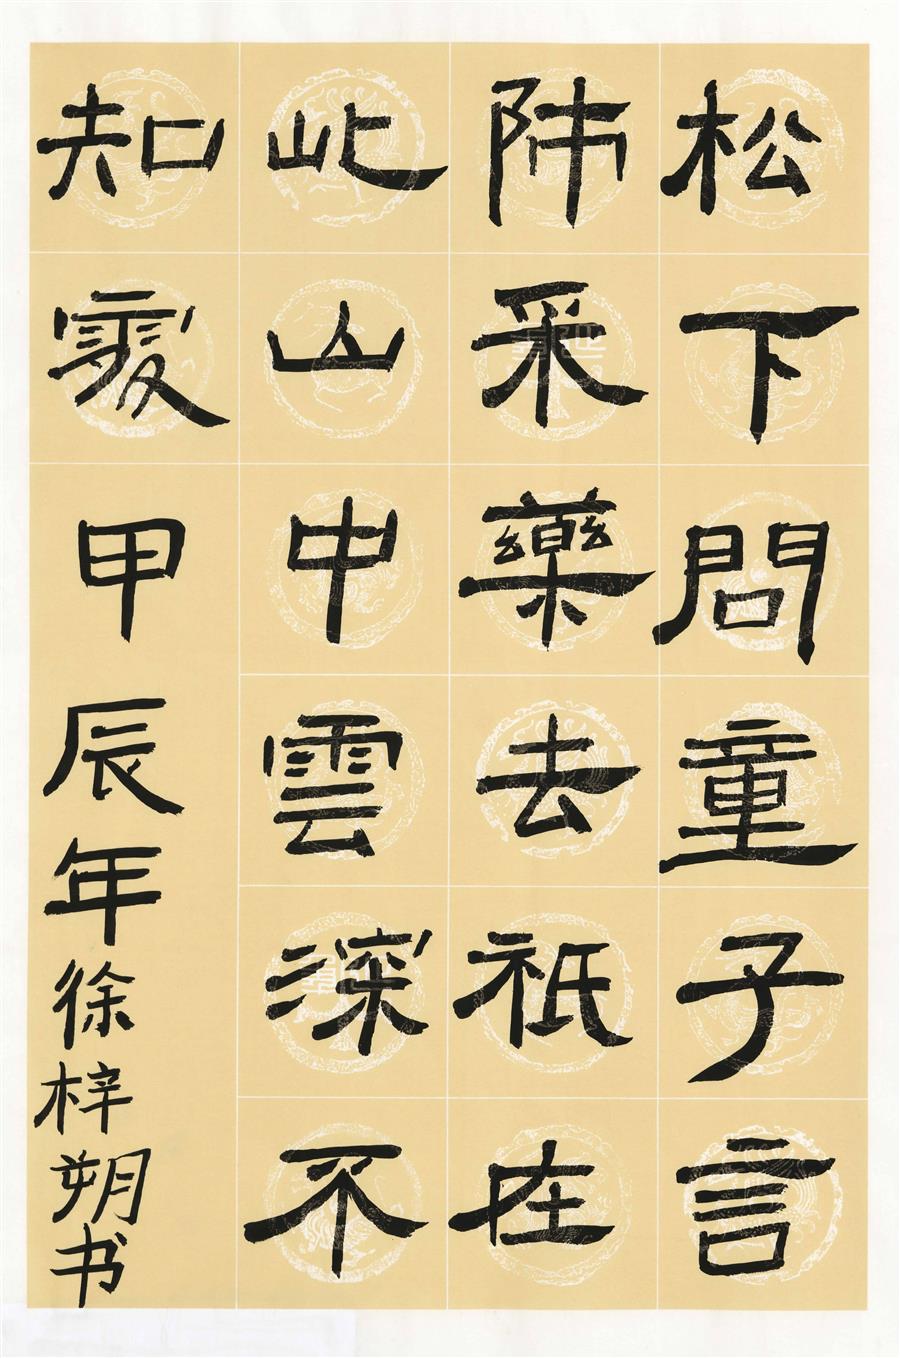 松下問童子言
師采藥去祇在
此山中雲深不
知處甲辰年徐梓朔书